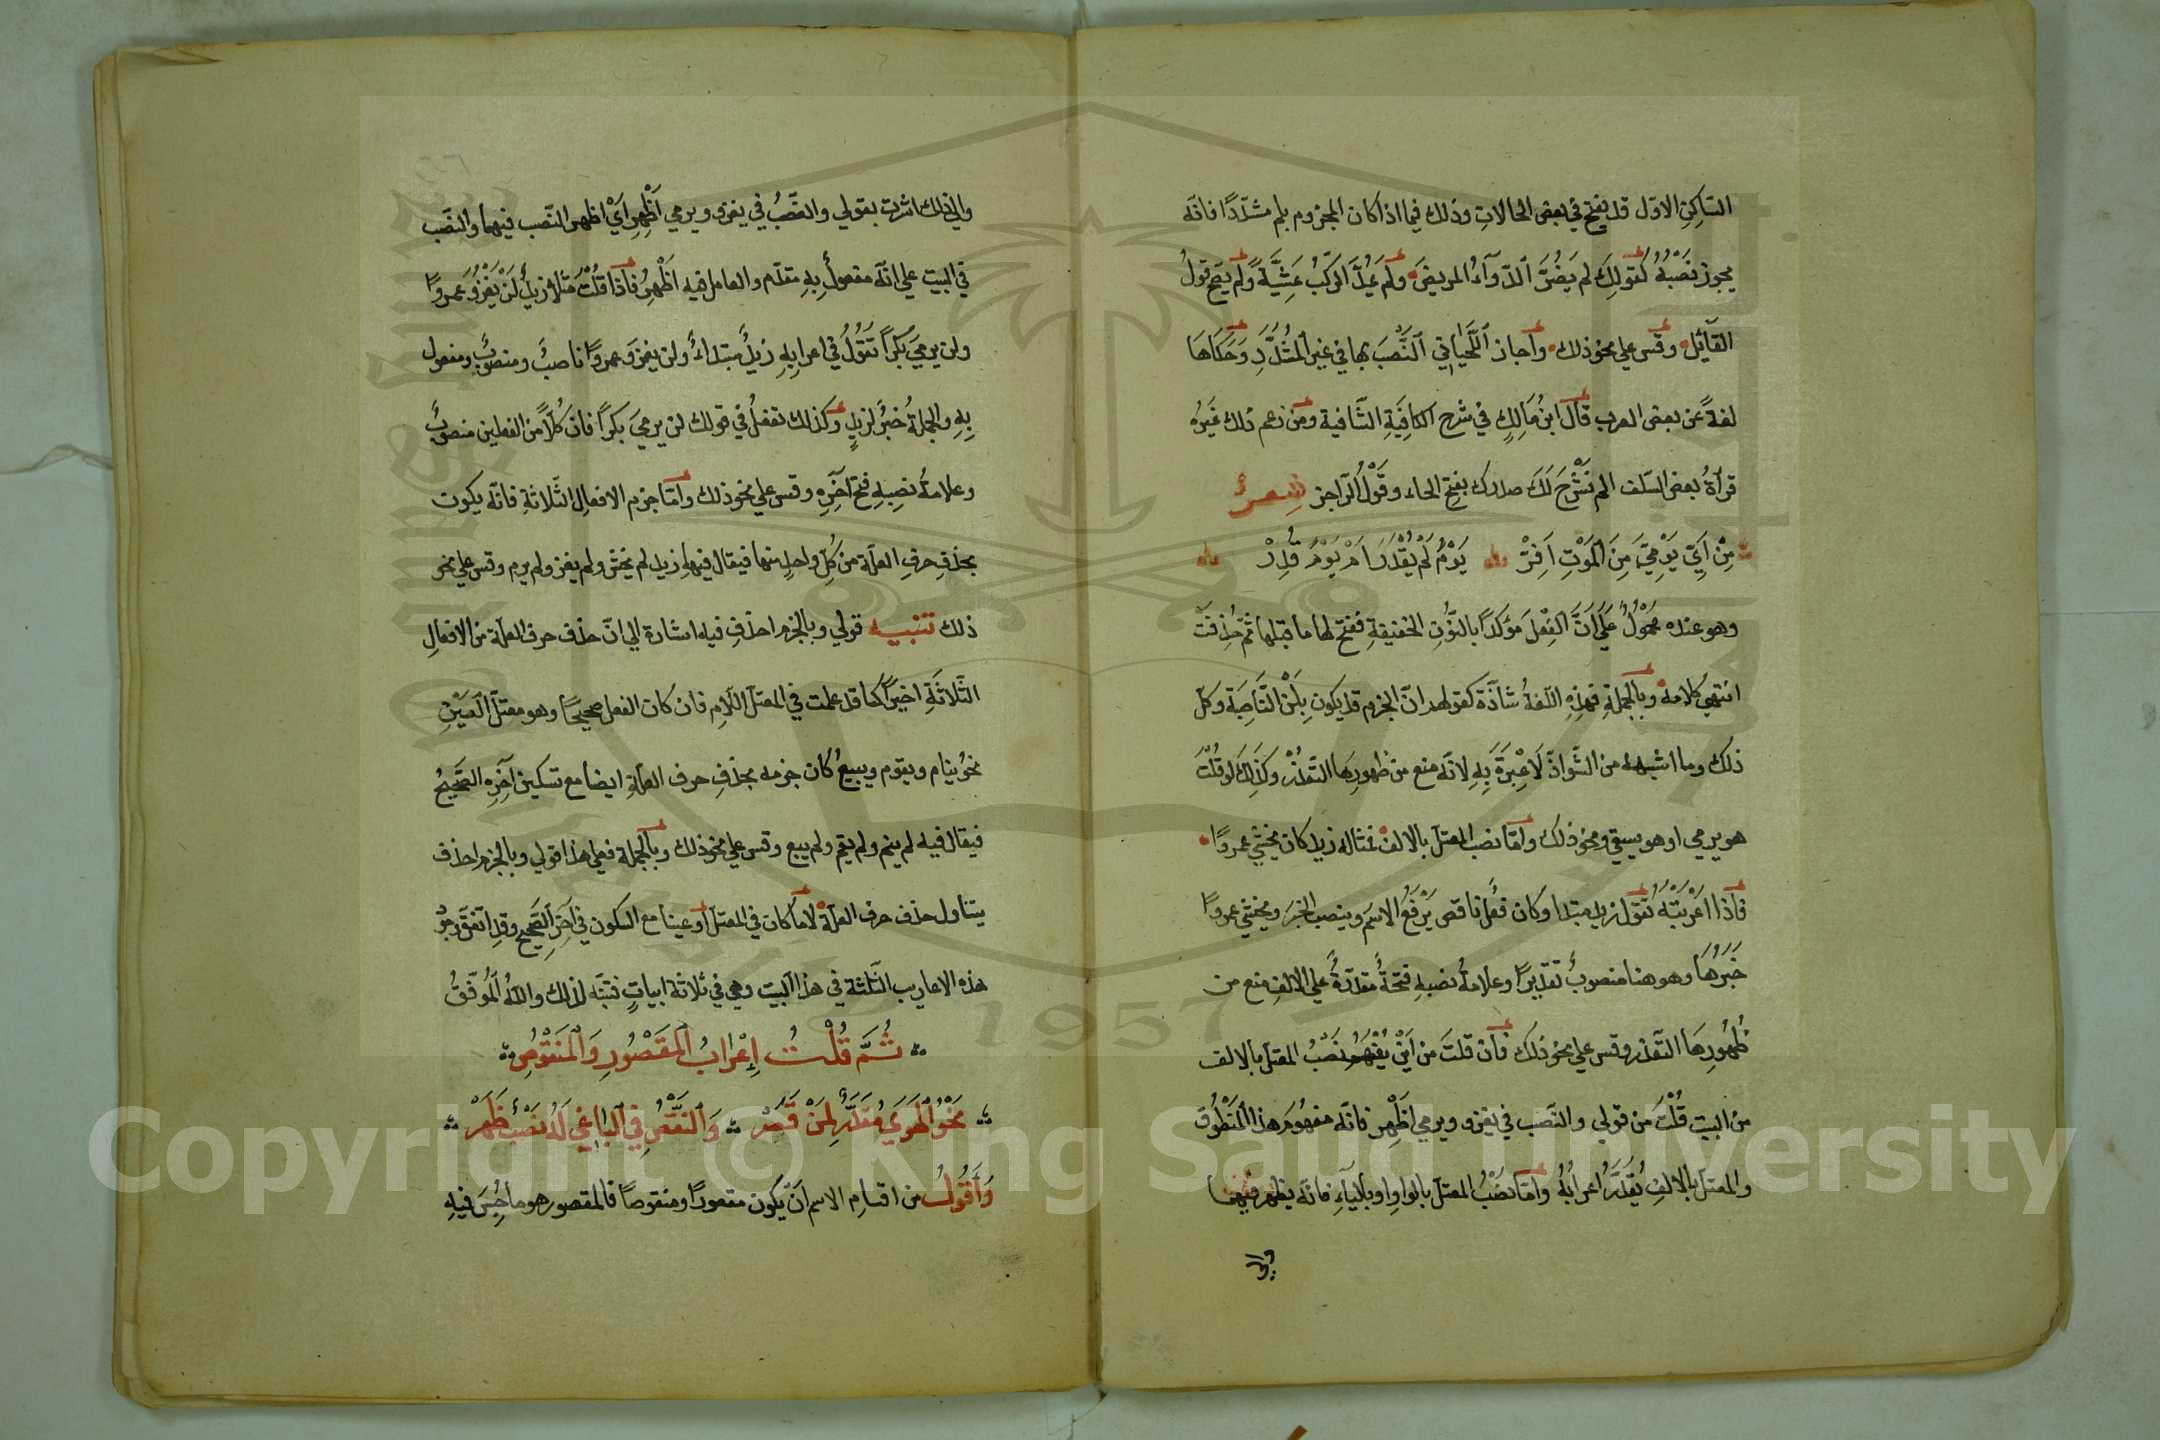 الساكن الاول قد يفتح في بعض الحالاتِ وذلك فيما اذا كان المجزوم بلم مشدّدًا فانّه
يجوز نصْبُهُ كقولِكَ لم يَضُرَّ ٱلدّوآءُ المريضَ ولَم يَمُدَّ الركبُ عَشِيَّةً ولَم يصِحّ قولُ
القآئِل وقس علي نحو ذلك وأجاز ٱللَّحْيَانِي ٱلنَّصْبَ بها في غير ٱلْمُشَدَّدِ وَحَكَاهَا
لغةً عن بعض العرب قال ابنُ مَالِكٍ فيْ شرح الكافِيَةِ الشَّافية ومن زعم ذلك غَيْرُه
قرأةُ بعض السّلف الم نَشْرَحَ لَكَ صدرك بفتح الحاء وقَوْلُ الرّاجز شِعرٌ
مِنْ اَيِّ يَوْمَيَّ مِنَ الْمَوْتِ اَفِرّْ يَوْمَ لَمْ يُقْدَرَ اَمْ يَوْمَ قُدِرْ
وهو عنده مَحْمُولٌ عَلَي اَنَّ الفِعْلَ مؤكّدًا بالنُّونِ الخفيفةِ ففتح لها ما قبلها ثُمَّ حُذِفَتْ
انتهي كلامه وبالجملةِ فهذِهِ اللّغةُ شاذّة كقولهم انّ الجزم قد يكون بِلَنْ النَّاصِبَة وكلّ
ذلك وما اشبهه من الشَّواذّ لَا عِبْرَةَ بِهِ لانّه منع من ظهورِهَا التّعذُّرُ وكَذَلِكَ لو قُلْتَ
هو يرمي او هو يسقي ونحو ذلك وامّا نصب المعتلّ بالالف فمثاله زيد كان يخشي عمروًا
فاذا اَعْرَبْتَهُ تَقُول زيد مبتدا وكان فعل ناقص يَرْفَعُ الاسمَ وينصب الخبرَ ويخشي عمروًا
خَبَرُهَا وهو هنا منصوبٌ تقديرًا وعلامةُ نصبهِ فتحةٌ مقدّرةٌ علي الالفِ منع من
ظُهُورِهَا التّعذّر وقس علي نحو ذلك فان قلتَ من اَيْنَ يُفْهَمُ نَصْبُ المعتلّ بالالف
من البيت قُلْتُ من قولي والنّصب في يغزو ويرمي اظْهِرْ فانّه مفهُومُ هذا المَنْطُوق
والمعتلّ بالالفِ يُقَدّرُ اعرابُهُ وامّا نَصْبُ المعتلّ بالواو او باليآءِ فانّه يظهر فيهما
والي
والي ذلك اشرت بقولي والنّصْبُ في يغزو ويرمي اَظْهِرِ اَيْ اظهر النّصب فيهما والنّصب
في البيت علي انّه مفعولٌ بِهِ مقدّم والعامل فيه اَظْهِرْ فاذا قُلْتَ مثلا زيدٌ لَنْ يَغْزُوَ عَمروًا
ولن يرمِيَ بكرًا تَقُولُ في اعرابِهِ زيدٌ مبتدأٌ ولن يغزوَ عمروًا ناصبٌ ومنصوبٌ ومفعول
بِهِ والجملةُ خبرٌ لزيدٍ وكذلك تفعلُ في قولك لن يرميَ بكرًا فانّ كُلّاً من الفعلين منصوبٌ
وعلامةُ نصبِهِ فتح آخِرِهِ وقس علي نحو ذلك وامّا جزم الافعال الثَّلاثةِ فانّه يكون
بحذفِ حرفِ العلّة من كُلِّ واحدٍ منها فيقال فيها زيد لم يخشَ ولم يغزُ ولم يرمِ وقس علي نحو
ذلك تنبيـه قولي وبالجزم احذفِ فيه اشارة الي انّ حذف حرف العلّة من الافعالِ
الثَّلاثَةِ اخيرًا كما قد علمت في المعتلّ اللّامِ فان كان الفعل صحيحًا وهو معتلّ ٱلعَيْنِ
نحوُ ينام ويقوم ويبيعُ كان جزمه بحذفِ حرف العلّةِ ايضا مع تسكين آخِرِهِ الصَّحِيحُ
فيقال فيه لم ينم ولم يقم ولم يبع وقس علي نحو ذلك وبالجملة فعلي هذا قولي وبالجزم احذف
يتناول حذف حرف العلّة لاما كان في المعتلّ او عينا مع السكون في آخِرِ الصَّحِيحِ وقد اتّفقَ وجودُ
هذه الاعاريب الثّلثة في هذا البيت وهي في ثلاثة ابياتٍ فتنبّه لذلك واللّٰهُ الْمُوَفِّقُ
ثُمَّ قُلْتُ إِعْرَابُ ٱلمَقْصُورِ وَٱلْمَنْقُوصِ
نَحْوُ ٱلْهَوَي مُقَدَّرٌ لِمَنْ قَصَرْ وَٱلنَّقْصُ فِي ٱلبَاغِي لَهُ نَصْبٌ ظَهَرْ
وَأَقُولُ من اقسامِ الاسم انّ يكون مقصورًا ومنقوصًا فالمقصور هو ما حُبِسَ فيهِ